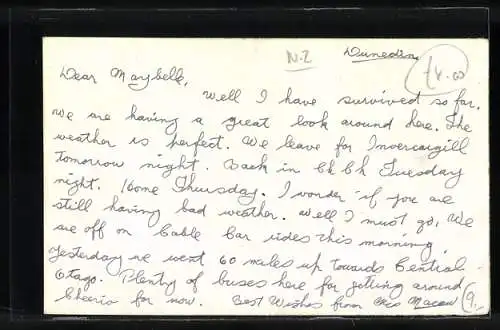 N.Z
Dunedin,
Dear Maybelle,
Well I have survived so far.
We are having a great look around here. The
weather is perfect. We leave for Invercargill
tomorrow night. Back in Ch Ch Tuesday
night. Home Thursday. I wonder if you are
still having bad weather. Well I must go, We
are off on Cable Car rides this morning.
Yesterday we went 60 miles up towards Central
Otago. Plenty of buses here for getting around
Cheerio for now. Best Wishes from